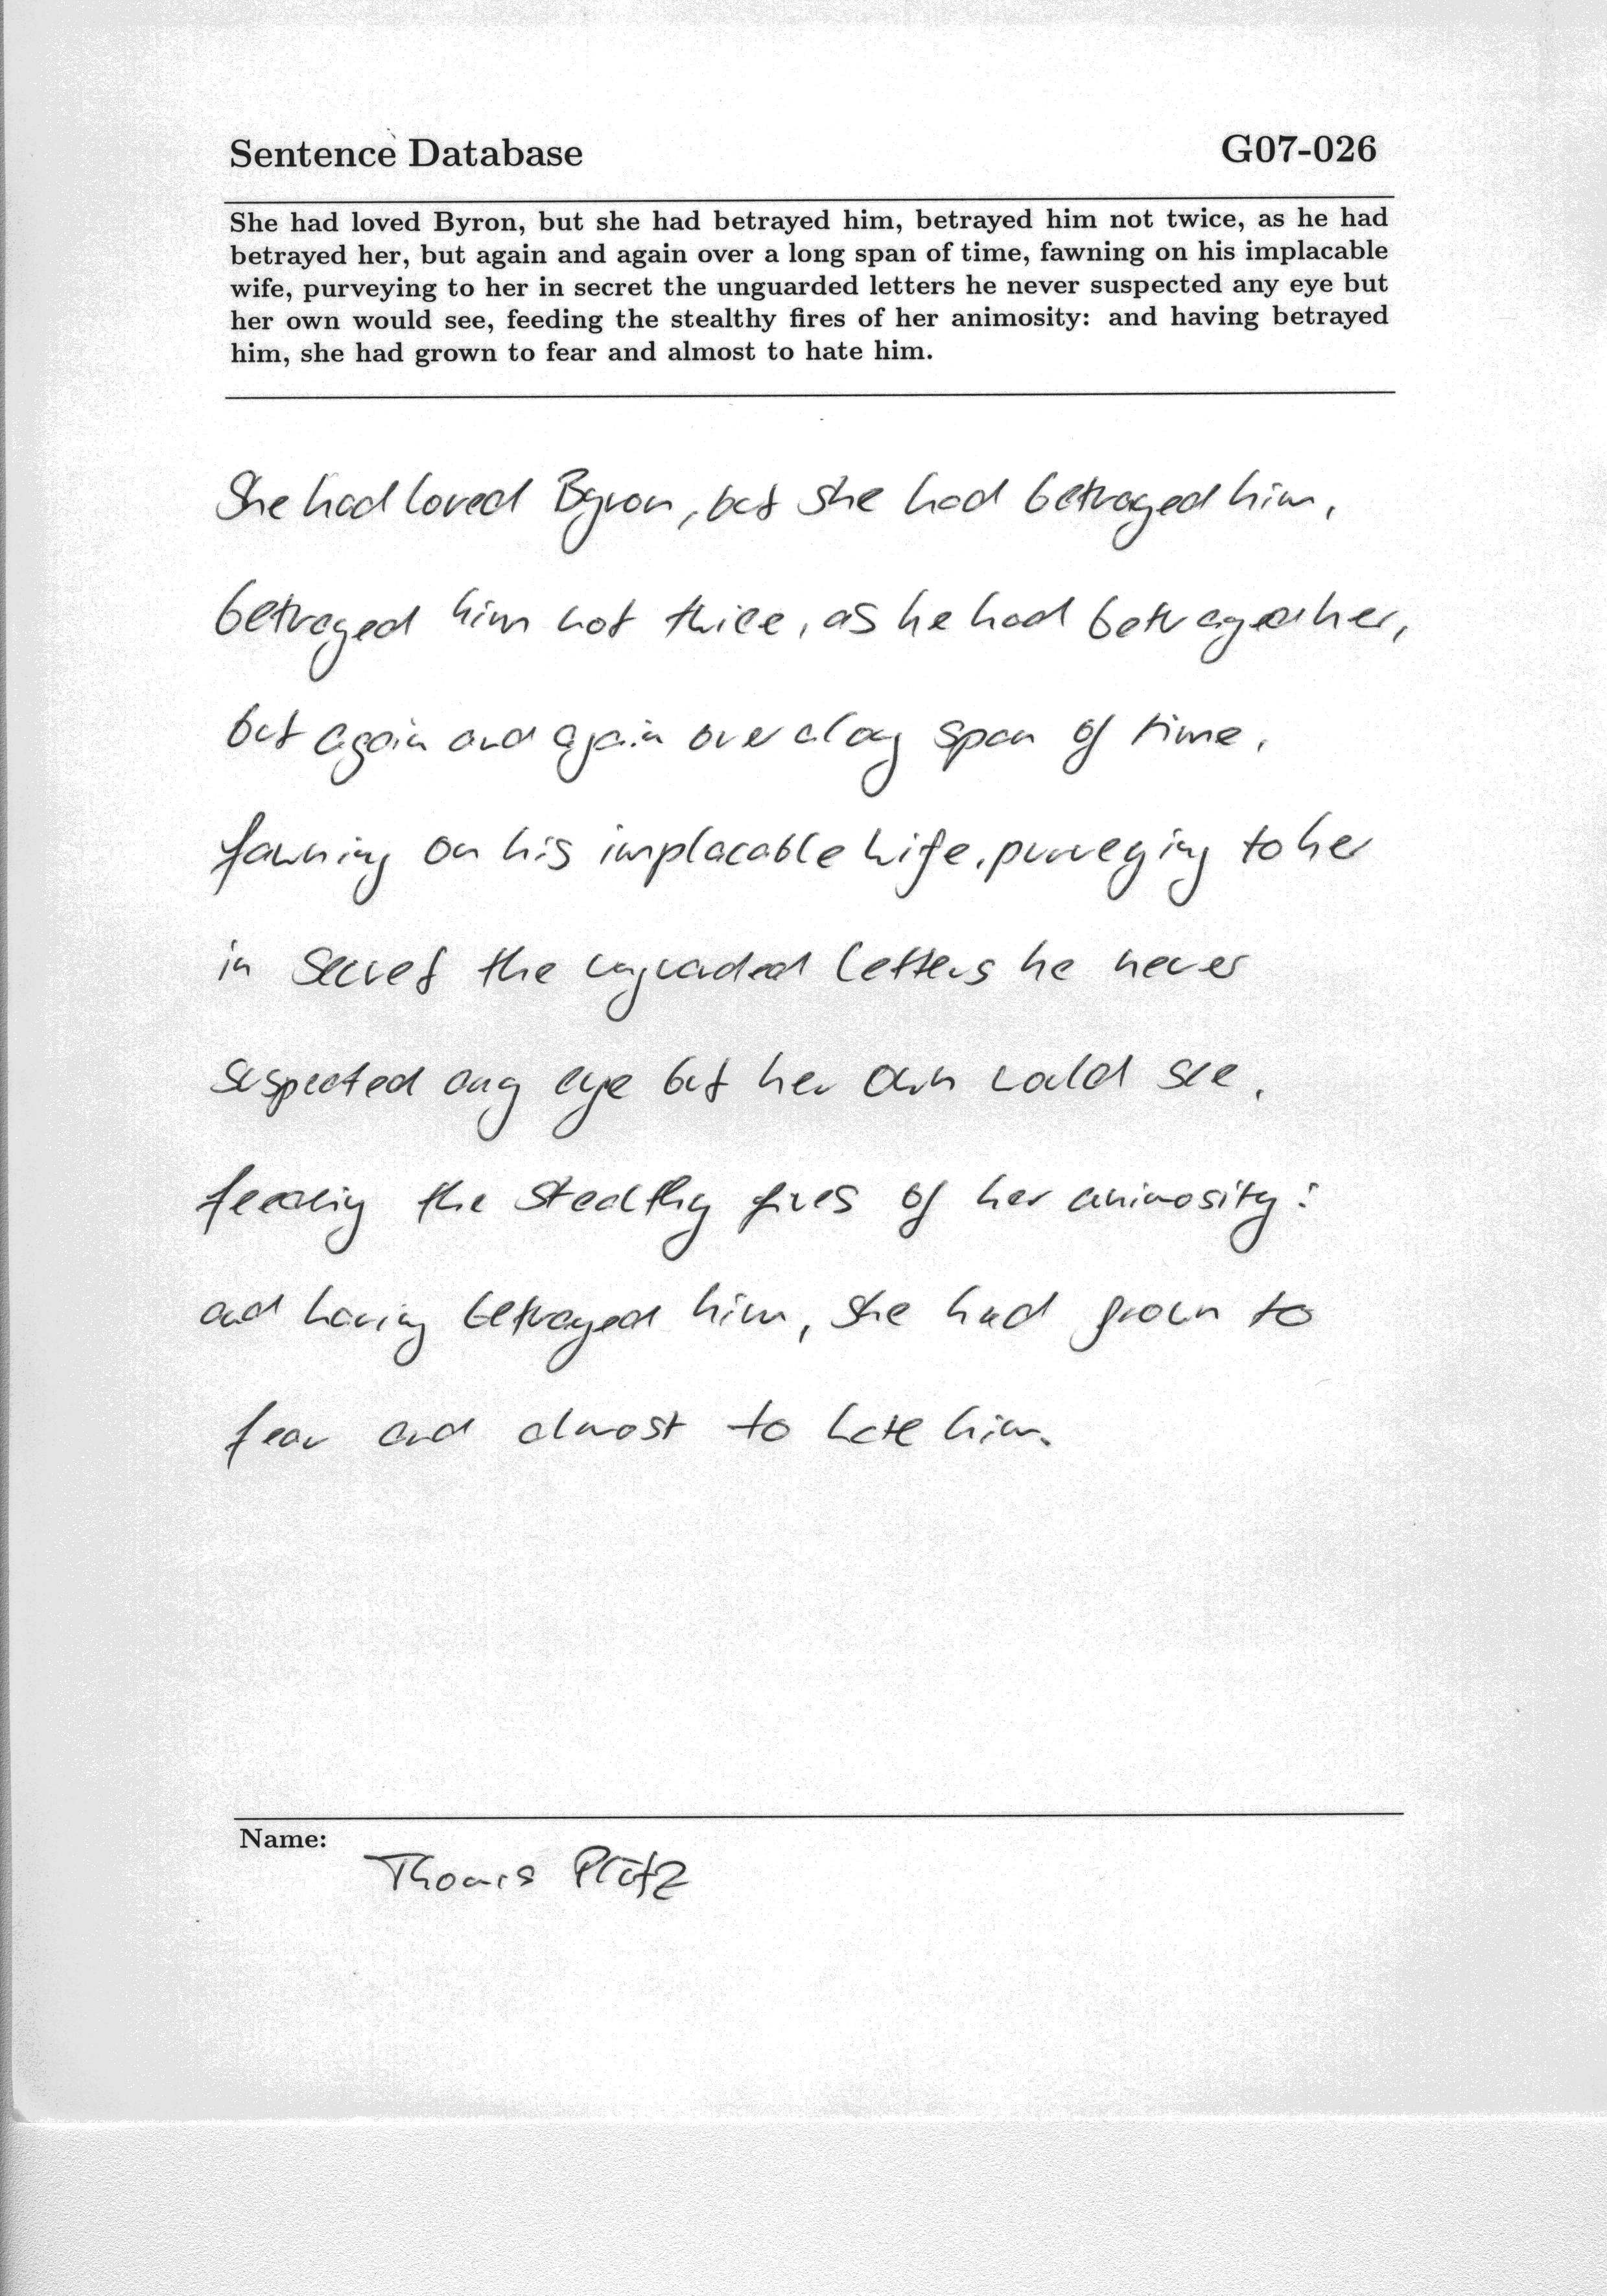 Sentence Database G07-026
She had loved Byron, but she had betrayed him, betrayed him not twice, as he had
betrayed her, but again and again over a long span of time, fawning on his implacable
wife, purveying to her in secret the unguarded letters he never suspected any eye but
her own would see, feeding the stealthy fires of her animosity: and having betrayed
him, she had grown to fear and almost to hate him.
She had loved Byron, but she had betrayed him,
betrayed him not twice, as he had betrayed her,
but again and again over a long span of time,
fawning on his implacable wife, purveying to her
in secret the unguarded letters he never
suspected any eye but her own would see,
feeding the stealthy fires of her animosity:
and having betrayed him, she had grown to
fear and almost to hate him.
Name:
Thomas Plötz